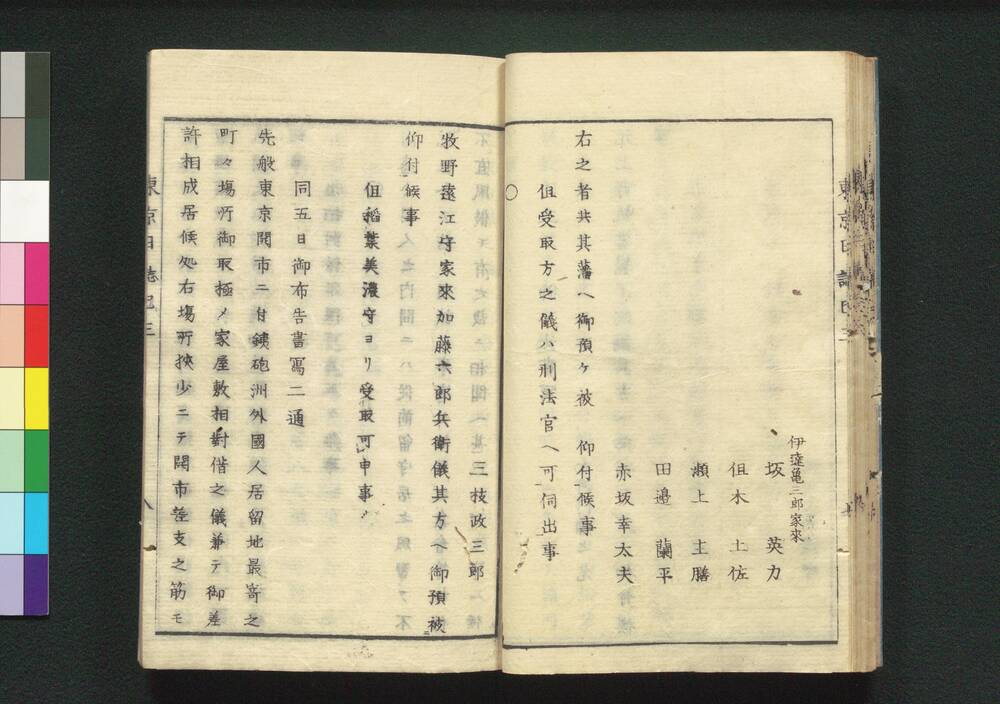 伊達亀三郎家來
坂 英力
但木 土佐
瀬上 主膳
田邉 蘭平
赤坂幸太夫
右之者共其藩へ御預ケ被 仰付候事
但受取方之儀ハ刑法官へ可伺出事
○
三技政三郎
牧野遠江守家來加藤六郎兵衛儀其方へ御預被
仰付候事
但稻葉美濃守ヨリ受取可申事
同五日御布告書寫二通
先般東京開市ニ付銕砲洲外國人居留地最寄之
町々塲所御取極メ家屋敷相對借之儀兼テ御差
許相成居候処右塲所狹少ニテ開市差支之筋モ
東京日誌
八